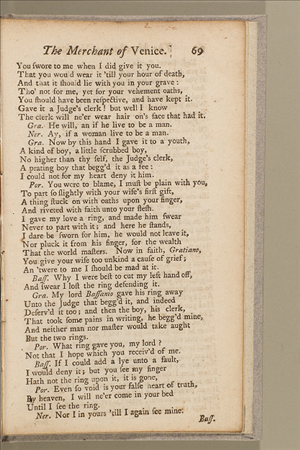 The Merchant of Venice. 69
You swore to me when I did give it you.
That you wou'd wear it 'till your hour of death,
And that it should lie with you in your grave:
Tho' not for me, yet for your vehement oaths,
You should have been respective, and have kept it.
Gave it a Judge's clerk! but well I know
The clerk will ne'er wear hair on's face that had it.
Gra. He will, an if he live to be a man.
Ner. Ay, if a woman live to be a man.
Gra. Now by this hand I gave it to a youth,
A kind of boy, a little scrubbed boy,
No higher than thy self, the Judge's clerk,
A prating boy that begg'd it as a fee:
I could not for my heart deny it him.
Por. You were to blame, I must be plain with you,
To part so slightly with your wife's first gift,
A thing stuck on with oaths upon your finger,
And riveted with faith unto your flesh.
I gave my love a ring, and made him swear
Never to part with it; and here he stands,
I dare be sworn for him, he would not leave it,
Nor pluck it from his finger, for the wealth
That the world masters. Now in faith, Gratiano,
You give your wife too unkind a cause of grief;
An 'twere to me I should be mad at it.
Bass. Why I were best to cut my left hand off,
And swear I lost the ring defending it.
Gra. My lord Bassanio gave his ring away
Unto the Judge that begg'd it, and indeed
Deserv'd it too; and then the boy, his clerk,
That took some pains in writing, he begg'd mine,
And neither man nor master would take aught
But the two rings.
Por. What ring gave you, my lord?
Not that I hope which you receiv'd of me.
Bass. If I could add a lye unto a fault,
I would deny it; but you see my finger
Hath not the ring upon it, it is gone.
Por. Even so void is your false heart of truth,
By heaven, I will ne'er come in your bed
Until I see the ring.
Ner. Nor I in yours 'till I again see mine.
Bass.